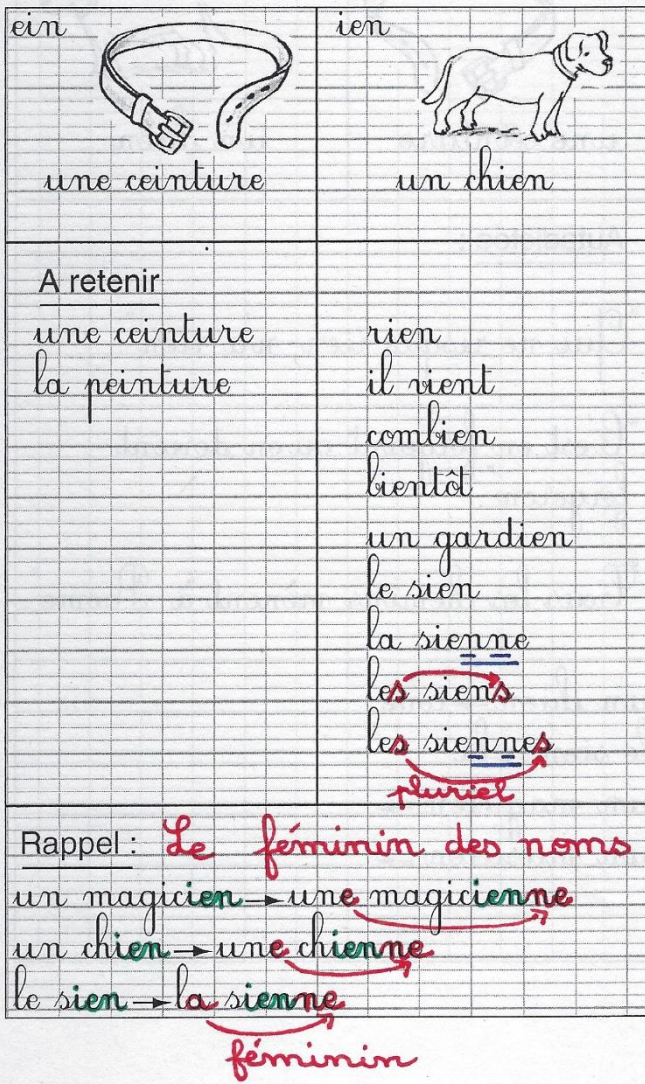 ein
une ceinture
ien
un chien
A retenir
une ceinture
la peinture
rien
il vient
combien
bientôt
un gardien
le sien
la sienne
les siens
les siennes
pluriel
Rappel : Le féminin des noms
un magicien → une magicienne
un chien → une chienne
le sien → la sienne
féminin